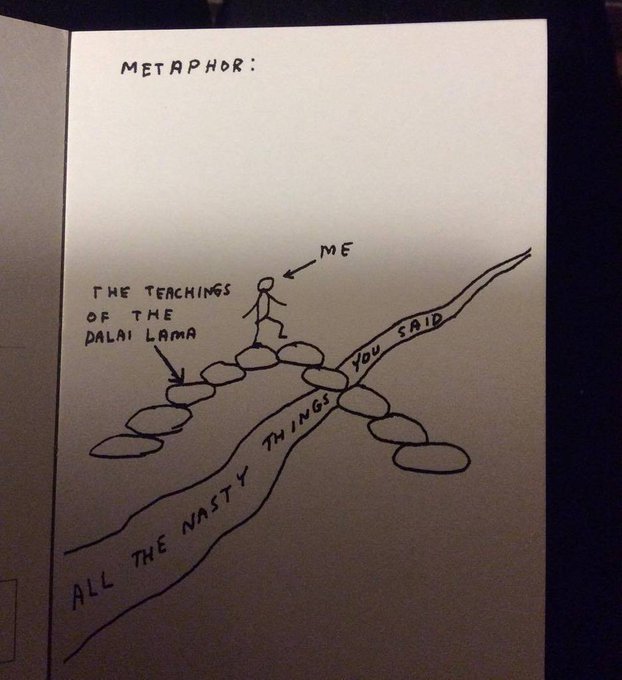 METAPHOR:
ME
THE TEACHINGS
OF THE
DALAI LAMA
ALL THE NASTY THINGS YOU SAID